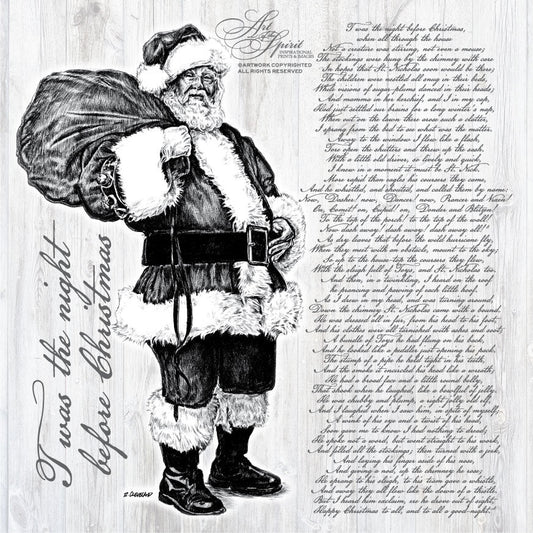 Art
of the
Spirit
INSPIRATIONAL
PRINTS & IMAGES
©ARTWORK COPYRIGHTED
ALL RIGHTS RESERVED
T'was the night
before Christmas
T'was the night before Christmas,
when all through the house
Not a creature was stirring, not even a mouse;
The stockings were hung by the chimney with care
In hopes that St. Nicholas soon would be there;
The children were nestled all snug in their beds,
While visions of sugar-plums danced in their heads;
And mamma in her kerchief, and I in my cap,
Had just settled our brains for a long winter's nap,
When out on the lawn there arose such a clatter,
I sprang from the bed to see what was the matter.
Away to the window I flew like a flash,
Tore open the shutters and threw up the sash.
With a little old driver, so lively and quick,
I knew in a moment it must be St. Nick.
More rapid than eagles his coursers they came,
And he whistled, and shouted, and called them by name:
"Now, Dasher! now, Dancer! now, Prancer and Vixen!
On, Comet! on, Cupid! on, Donder and Blitzen!
To the top of the porch! to the top of the wall!
Now dash away! dash away! dash away all!"
As dry leaves that before the wild hurricane fly,
When they meet with an obstacle, mount to the sky;
So up to the house-top the coursers they flew,
With the sleigh full of Toys, and St. Nicholas too.
And then, in a twinkling, I heard on the roof
The prancing and pawing of each little hoof.
As I drew in my head, and was turning around,
Down the chimney St. Nicholas came with a bound.
He was dressed all in fur, from his head to his foot,
And his clothes were all tarnished with ashes and soot;
A bundle of Toys he had flung on his back,
And he looked like a peddler just opening his pack.
The stump of a pipe he held tight in his teeth,
And the smoke it encircled his head like a wreath;
He had a broad face and a little round belly,
That shook when he laughed, like a bowlful of jelly.
He was chubby and plump, a right jolly old elf,
And I laughed when I saw him, in spite of myself;
A wink of his eye and a twist of his head,
Soon gave me to know I had nothing to dread;
He spoke not a word, but went straight to his work,
And filled all the stockings; then turned with a jerk,
And laying his finger aside of his nose,
And giving a nod, up the chimney he rose;
He sprang to his sleigh, to his team gave a whistle,
And away they all flew like the down of a thistle.
But I heard him exclaim, ere he drove out of sight,
Happy Christmas to all, and to all a good-night."